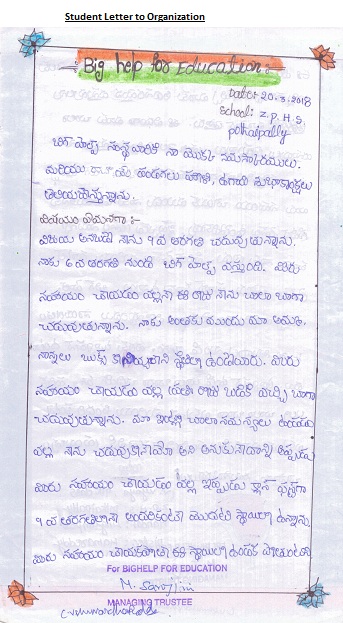 Student Letter to Organization
Big help for Education:-
Date: 20-3-2018
School: Z.P.H.S.
pothaipally
బిగ్ హెల్ప్ సంస్థ వారికి నా యొక్క నమస్కారములు.
మరియు పండుగలు హోళి, ఉగాది శుభాకాంక్షలు
తెలియజేస్తున్నాను.
విషయం ఏమనగా :-
విజయ అనబడే నేను 9వ తరగతి చదువుతున్నాను.
నాకు 6వ తరగతి నుండి బిగ్ హెల్ప్ వస్తుంది. మీరు
సహాయం చేయడం వల్లనే ఈ రోజు నేను చాలా బాగా
చదువుతున్నాను. నాకు అంతకు ముందు మా అమ్మ,
నాన్నలు బుక్స్ స్థితిలో ఉండేవారు. మీరు
సహాయం చేయడం వల్ల ప్రతి రోజు బడికి వచ్చి బాగా
చదువుతున్నాను. మా ఇంట్లో చాలా సమస్యలు ఉండడం
వల్ల నేను చదువుకోనేమో అని అనుకునేదాన్ని ఇప్పుడు
మీరు సహాయం చేయడం వల్ల ఇప్పుడు క్లాస్ ఫస్ట్‌గా
9వ తరగతిలోనే అందరికంటే మొదటి స్థాయిలో ఉన్నాను.
మీరు సహాయం చేయకపోతే ఈ స్థాయిలో ఉండక పోతుంటిని
For BIGHELP FOR EDUCATION
M. Sarojini
MANAGING TRUSTEE